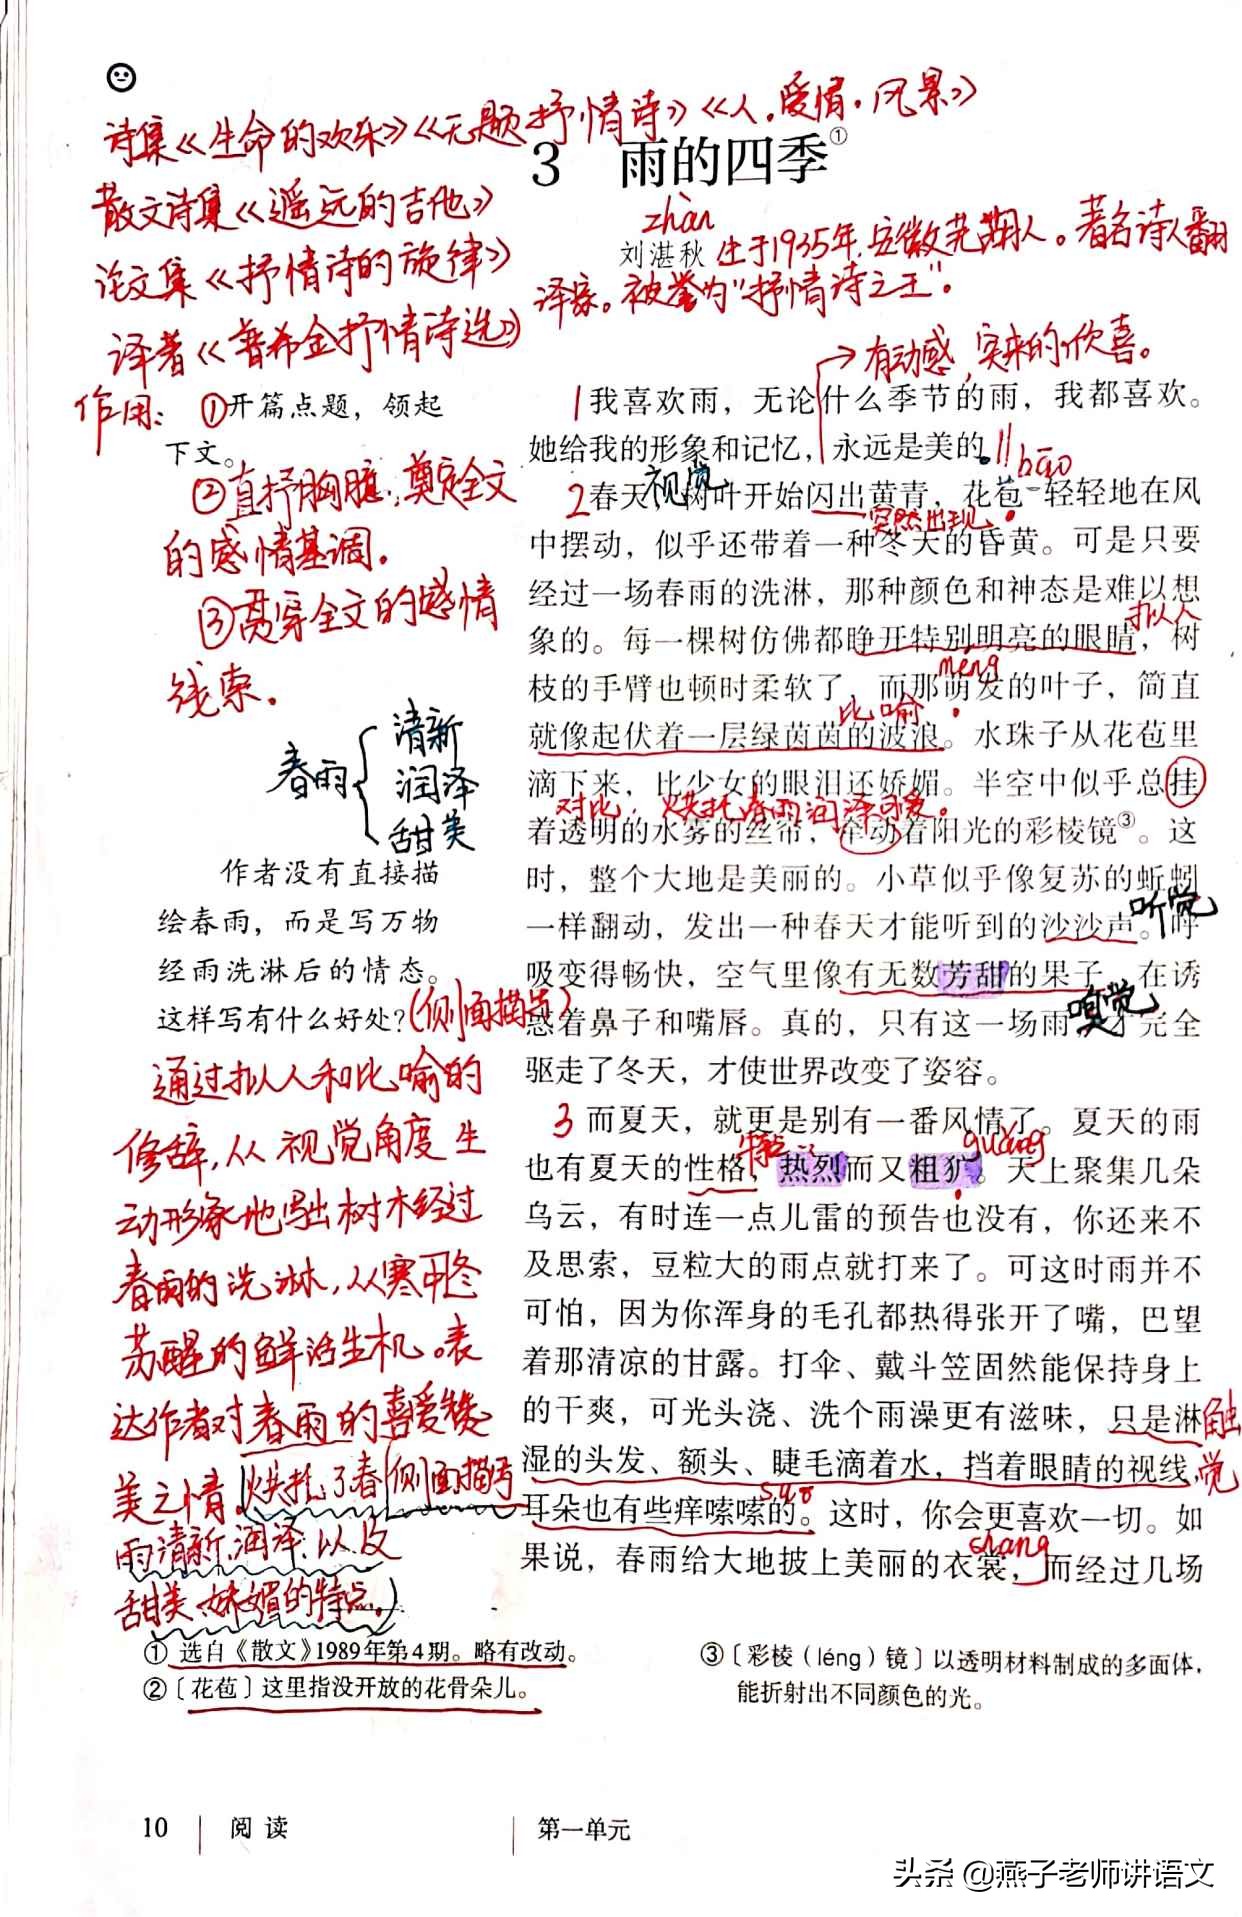 诗集《生命的欢乐》《无题抒情诗》《人·爱情·风景》
3 雨的四季①
散文诗集《遥远的吉他》
zhàn
刘湛秋 生于1935年,安徽芜湖人。著名诗人翻
论文集《抒情诗的旋律》
译家。被誉为“抒情诗之王”。
译著《普希金抒情诗选》
有动感,突来的欣喜。
作用:①开篇点题，领起
下文。
②直抒胸臆,奠定全文
的感情基调。
③贯穿全文的感情
线索。
春雨
清新
润泽
甜美
作者没有直接描
绘春雨，而是写万物
经雨洗淋后的情态。
这样写有什么好处?(侧面描写)
通过拟人和比喻的
修辞,从视觉角度生
动形象地写出树木经过
春雨的洗淋,从寒中冬
苏醒的鲜活生机。表
达作者对春雨的喜爱赞
美之情。烘托了春 侧面描写
雨清新、润泽、以及
甜美、妩媚的特点。
1我喜欢雨，无论什么季节的雨，我都喜欢。
她给我的形象和记忆，永远是美的。
bāo
视觉
2春天，树叶开始闪出黄青，花苞②轻轻地在风
突然出现
中摆动，似乎还带着一种冬天的昏黄。可是只要
经过一场春雨的洗淋，那种颜色和神态是难以想
拟人
象的。每一棵树仿佛都睁开特别明亮的眼睛，树
méng
枝的手臂也顿时柔软了，而那萌发的叶子，简直
比喻
就像起伏着一层绿茵茵的波浪。水珠子从花苞里
滴下来，比少女的眼泪还娇媚。半空中似乎总挂
对比,烘托春雨润泽可爱。
着透明的水雾的丝帘，牵动着阳光的彩棱镜③。这
时，整个大地是美丽的。小草似乎像复苏的蚯蚓
听觉
一样翻动，发出一种春天才能听到的沙沙声。呼
吸变得畅快，空气里像有无数芳甜的果子，在诱
嗅觉
惑着鼻子和嘴唇。真的，只有这一场雨，才完全
驱走了冬天，才使世界改变了姿容。
3而夏天，就更是别有一番风情了。夏天的雨
特点
guǎng
也有夏天的性格，热烈而又粗犷。天上聚集几朵
乌云，有时连一点儿雷的预告也没有，你还来不
及思索，豆粒大的雨点就打来了。可这时雨并不
可怕，因为你浑身的毛孔都热得张开了嘴，巴望
着那清凉的甘露。打伞、戴斗笠固然能保持身上
的干爽，可光头浇、洗个雨澡更有滋味，只是淋
触觉
湿的头发、额头、睫毛滴着水，挡着眼睛的视线，
耳朵也有些痒嗦嗦的。这时，你会更喜欢一切。如
suo
shang
果说，春雨给大地披上美丽的衣裳，而经过几场
① 选自《散文》1989年第4期。略有改动。
②〔花苞〕这里指没开放的花骨朵儿。
③〔彩棱（léng）镜〕以透明材料制成的多面体，
能折射出不同颜色的光。
10 阅读 第一单元
头条 @燕子老师讲语文